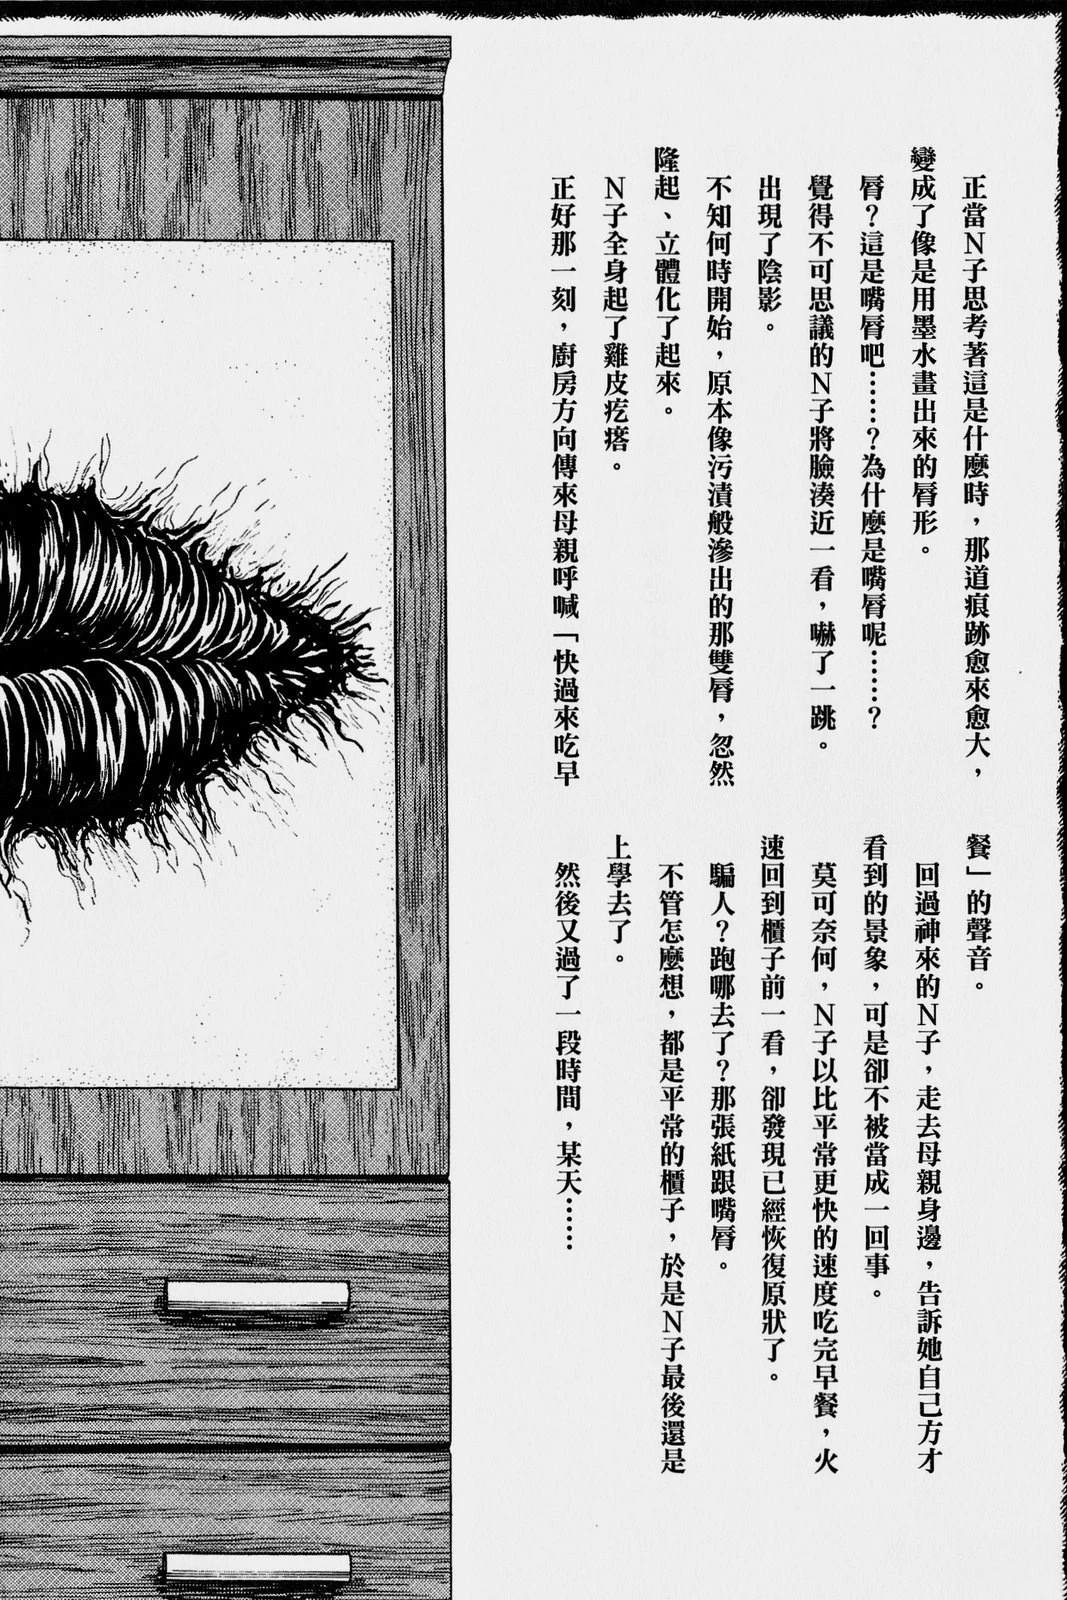 正當Ｎ子思考著這是什麼時，那道痕跡愈來愈大，
變成了像是用墨水畫出來的唇形。
唇？這是嘴唇吧……？為什麼是嘴唇呢……？
覺得不可思議的Ｎ子將臉湊近一看，嚇了一跳。
出現了陰影。
不知何時開始，原本像污漬般滲出的那雙唇，忽然
隆起、立體化了起來。
Ｎ子全身起了雞皮疙瘩。
正好那一刻，廚房方向傳來母親呼喊「快過來吃早
餐」的聲音。
回過神來的Ｎ子，走去母親身邊，告訴她自己方才
看到的景象，可是卻不被當成一回事。
莫可奈何，Ｎ子以比平常更快的速度吃完早餐，火
速回到櫃子前一看，卻發現已經恢復原狀了。
騙人？跑哪去了？那張紙跟嘴唇。
不管怎麼想，都是平常的櫃子，於是Ｎ子最後還是
上學去了。
然後又過了一段時間，某天……